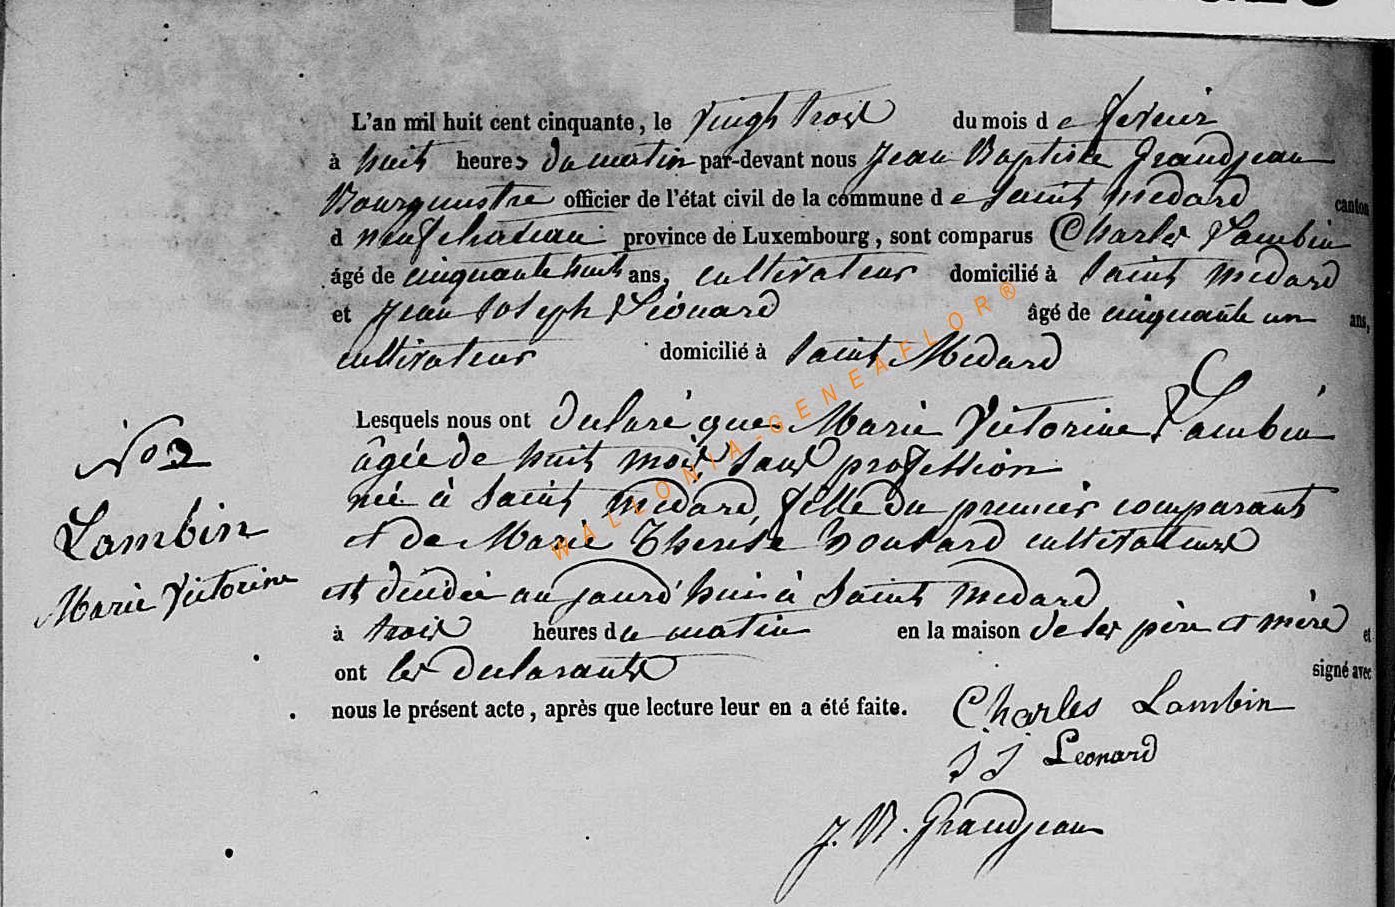 L'an mil huit cent cinquante, le vingt trois du mois de fevrier
à huit heures du matin par-devant nous Jean Baptiste Grandjean
Bourguestre officier de l'état civil de la commune de Saint Medard canton
d neufchateau province de Luxembourg, sont comparus Charles Lambin
âgé de cinquante huit ans, cultivateur domicilié à Saint Medard
et Jean Joseph Léonard âgé de cinquante un ans,
cultivateur domicilié à Saint Medard
Lesquels nous ont declaré que Marie Victorine Lambin
âgée de huit mois, sans profession
née à Saint Medard, fille du premier comparant
et de Marie Therese cultivateurs
est décédée aujourd'hui à Saint Medard
à trois heures du matin en la maison de ses père et mère et
ont les declarants signé avec
nous le présent acte, après que lecture leur en a été faite.
No 2
Lambin
Marie Victorine
Charles Lambin
J J Leonard
J. B. Grandjean
WALLONIA-GENEAFLOR®